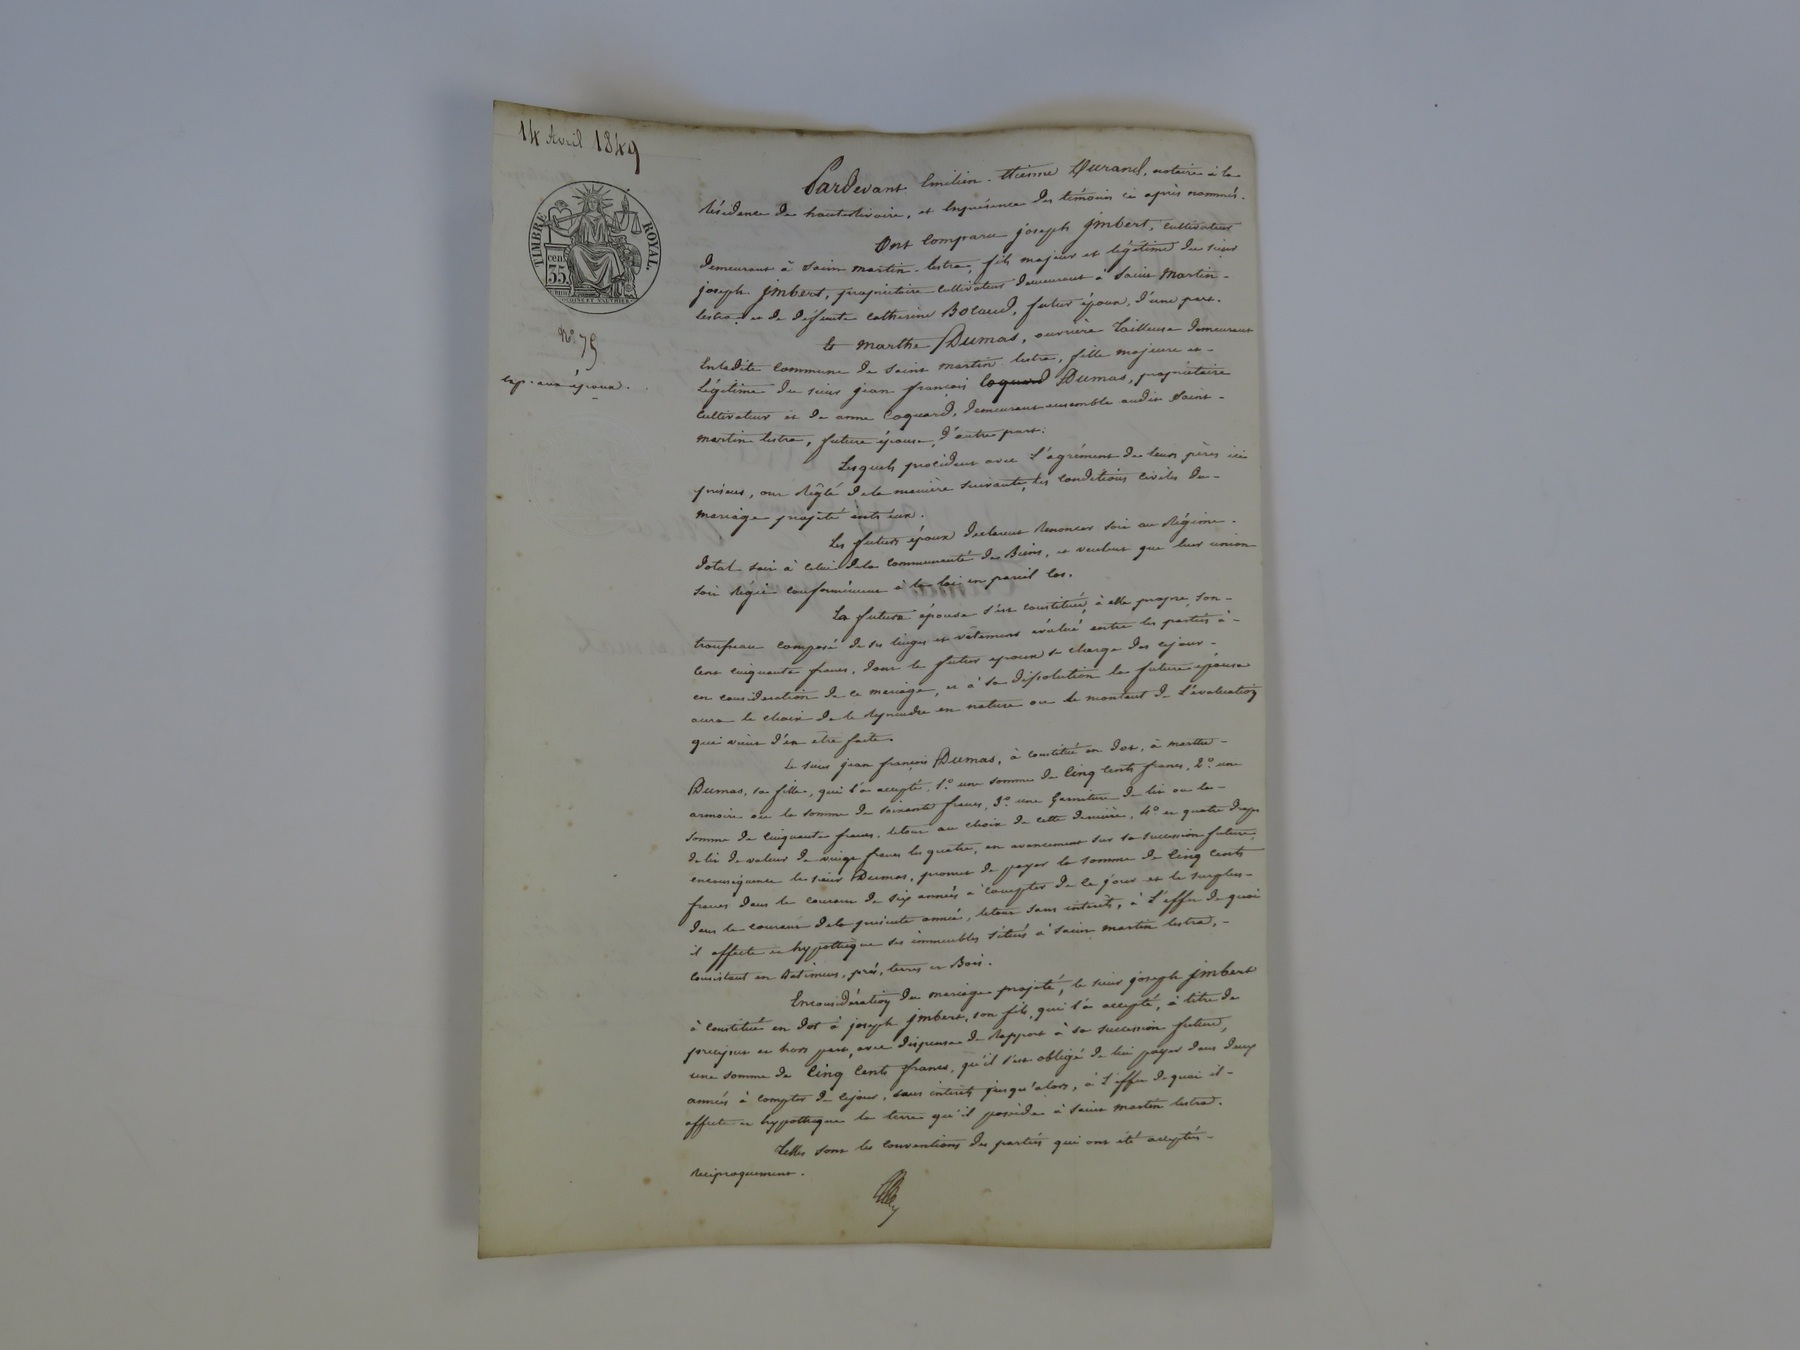 14 Avril 1849
TIMBRE ROYAL.
cen.
35
N.o 75
exp. aux époux.
Pardevant Emilien-Etienne Durand, notaire à la
résidence de hauterivoire, et en présence des témoins ci après nommés.
Ont comparu joseph jmbert, cultivateur
demeurant à saint martin-lestra, fils majeur et légitime du sieur
joseph jmbert, propriétaire cultivateur demeurant à saint Martin-
lestra, et de défunte catherine Bocaud, futur époux, d'une part.
Et marthe Dumas, ouvrière tailleuse demeurant
en ladite commune de saint martin lestra, fille majeure et-
légitime du sieur jean françois coquard Dumas, propriétaire
cultivateur et de anne coquard, demeurant ensemble audit saint-
martin lestra, future épouse, d'autre part.
Lesquels procédant avec l'agrément de leurs pères ici
présens, ont réglé de la manière suivante, les conditions civiles du-
mariage projeté entr'eux.
Les futurs époux déclarent renoncer soit au régime-
dotal soit à celui de la communauté de Biens, et veulent que leur union
soit régie conformément à la loi en pareil cas.
La future épouse s'est constituée, à elle propre, son-
trousseau composé de ses linges et vêtemens évalué entre les parties à-
cent cinquante francs, dont le futur époux se charge dès cejour-
en considération de ce mariage, et à sa dissolution la future épouse
aura le choix de le reprendre en nature ou le montant de l'évaluation
qui vient d'en être faite.
Le sieur jean françois Dumas, à constitué en dot, à marthe-
Dumas, sa fille, qui l'a accepté, 1.o une somme de cinq cents francs, 2.o une
armoire ou la somme de soixante francs, 3.o une garniture de lit ou la-
somme de cinquante francs, letout au choix de cette dernière, 4.o et quatre draps
de lit de valeur de vingt francs les quatre, en avancement sur sa succession future,
enconséquence le sieur Dumas, promet de payer la somme de cinq cents
francs dans le courant de six années à compter de ce jour et le surplus-
dans le courant dela présente année, letout sans intérêts, à l'effet de quoi
il affecte et hypothèque ses immeubles situés à saint martin lestra,-
consistant en batimens, prés, terres et Bois.
Enconsidération du mariage projeté, le sieur joseph jmbert
à constitué en dot à joseph jmbert, son fils, qui l'a accepté, à titre de
preciput et hors part, avec dispense de rapport à sa succession future,
une somme de cinq cents francs, qu'il s'est obligé de lui payer dans deux
années à compter de cejour, sans intérêts jusqu'alors, à l'effet de quoi il-
affecte et hypothèque la terre qu'il possède à saint martin lestra.
Telles sont les conventions des parties qui ont été acceptées-
réciproquement.